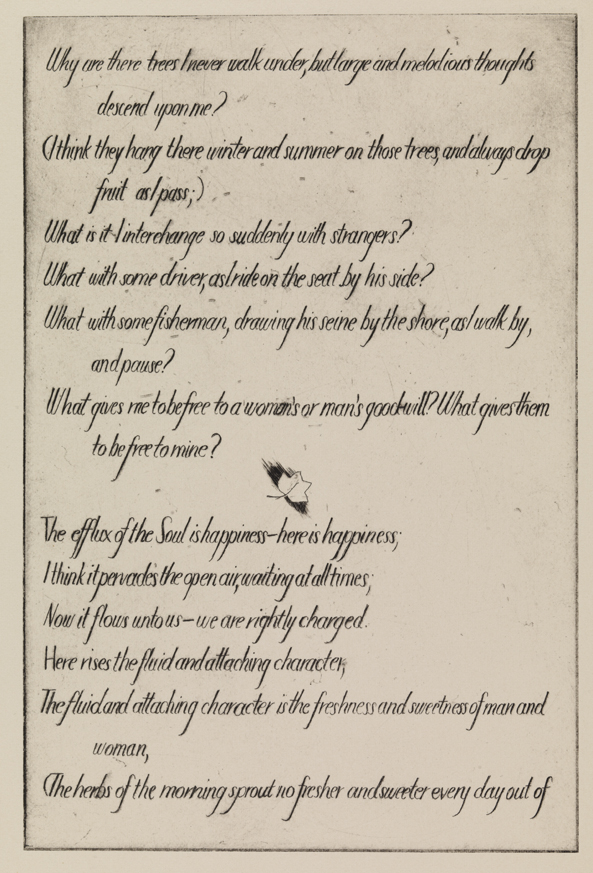 Why are there trees I never walk under, but large and melodious thoughts
descend upon me?
(I think they hang there winter and summer on those trees, and always drop
fruit as I pass;)
What is it I interchange so suddenly with strangers?
What with some driver, as I ride on the seat by his side?
What with some fisherman, drawing his seine by the shore, as I walk by,
and pause?
What gives me to be free to a woman's or man's good-will? What gives them
to be free to mine?
The efflux of the Soul is happiness—here is happiness;
I think it pervades the open air, waiting at all times;
Now it flows unto us—we are rightly charged.
Here rises the fluid and attaching character;
The fluid and attaching character is the freshness and sweetness of man and
woman,
(The herbs of the morning sprout no fresher and sweeter every day out of